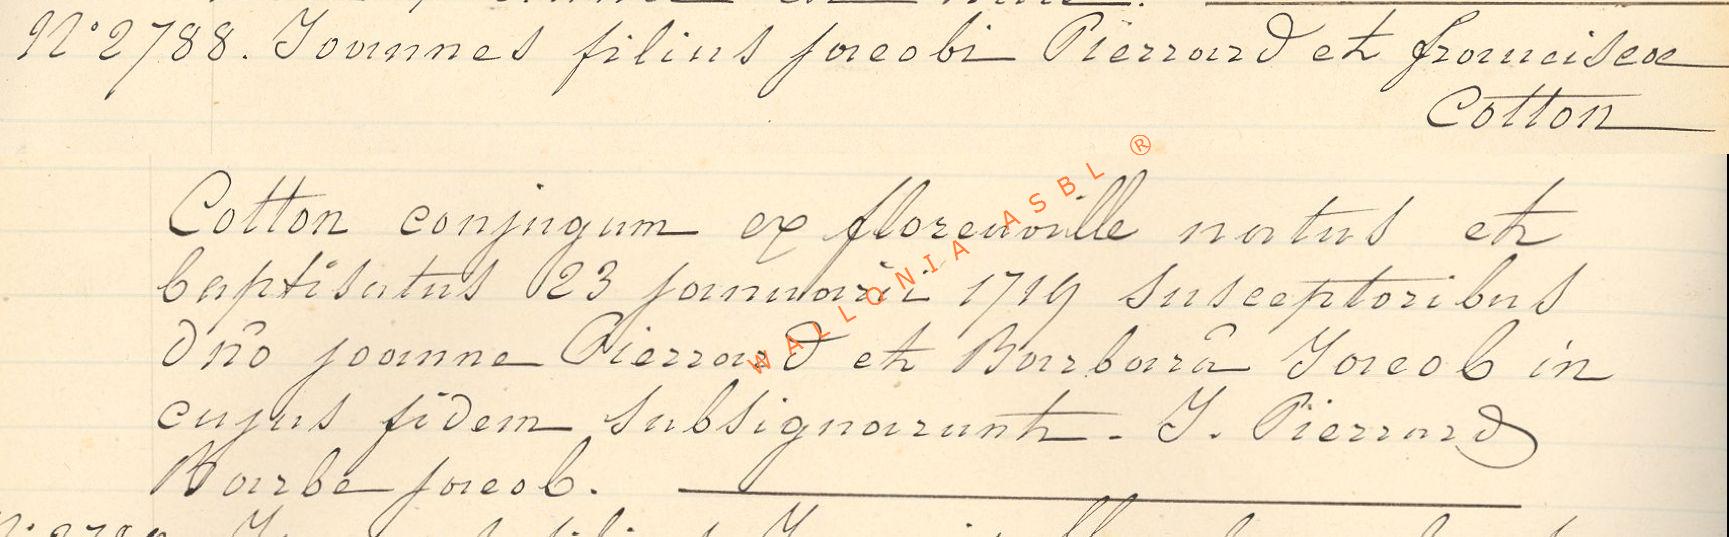 N° 2788. Joannes filius jacobi Pierrard et franciscæ
Cotton
Cotton conjugum ex florenville natus et
baptisatus 23 januarii 1719 susceptoribus
dño joanne Pierrard et Barbarâ Jacob in
cujus fidem subsignarunt. J. Pierrard
Barbe jacob.
WALLONIA ASBL ®